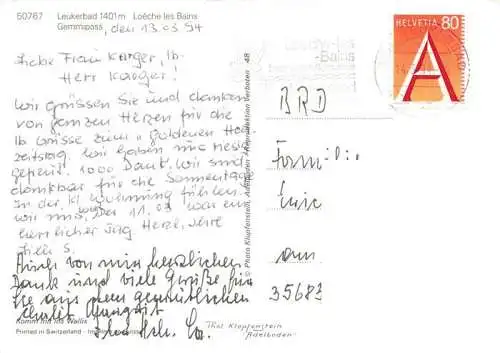 50767 Leukerbad 1401m Loèche les Bains
Gemmipass, den 13.03.94
Liebe Frau Karger, lb.
Herr Karger!
Wir grüssen Sie und danken
von ganzem Herzen für die
lb Grüsse zum "goldenen Hoch
zeitstag. Wir haben uns riesig
gefreut. 1000 Dank. Wir sind
dankbar für die Sonnentage
in der kl Wohnung fühlen
wir uns wohl. Der 11.03 war ein
herrlicher Tag. Herzl. Ihre
Auch von mir herzlichen
Dank und viele Grüße für
Sie aus dem gemütlichen
Chalet
Komm mit ins Wallis
Printed in Switzerland
© Photo Klopfenstein, Adelboden - Reproduktion Verboten 48
Loèche-les
-Bains
HELVETIA 80
A
BRD
Familie
am
35683
Phot Klopfenstein
Adelboden